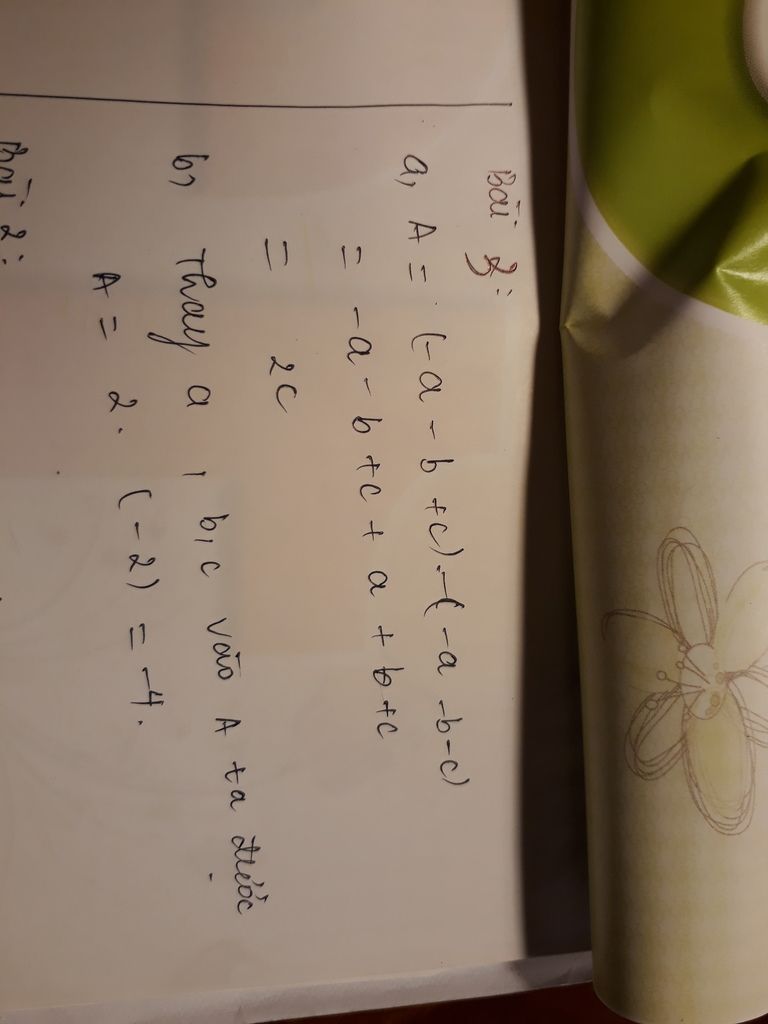 Bài 3:
a, A = (-a - b + c) - (-a - b - c)
= -a - b + c + a + b + c
= 2c
b, Thay a, b, c vào A ta được
A = 2. (-2) = -4.
Bài 2: